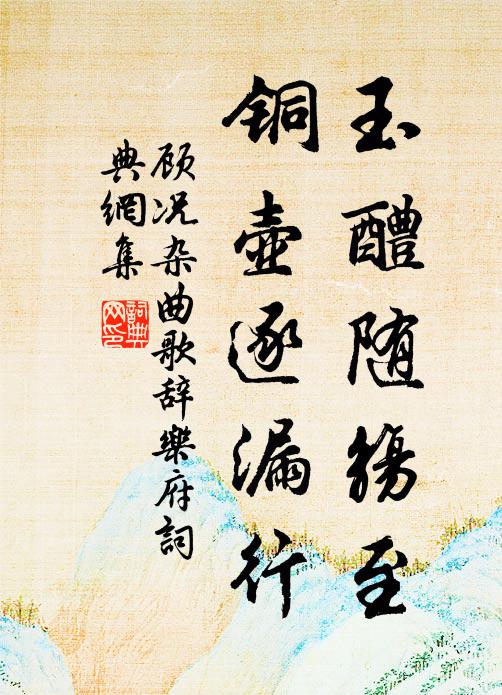 玉醴随觞至
铜壶逐漏行
顾况杂曲歌辞乐府詞
典網集
詞典
网印